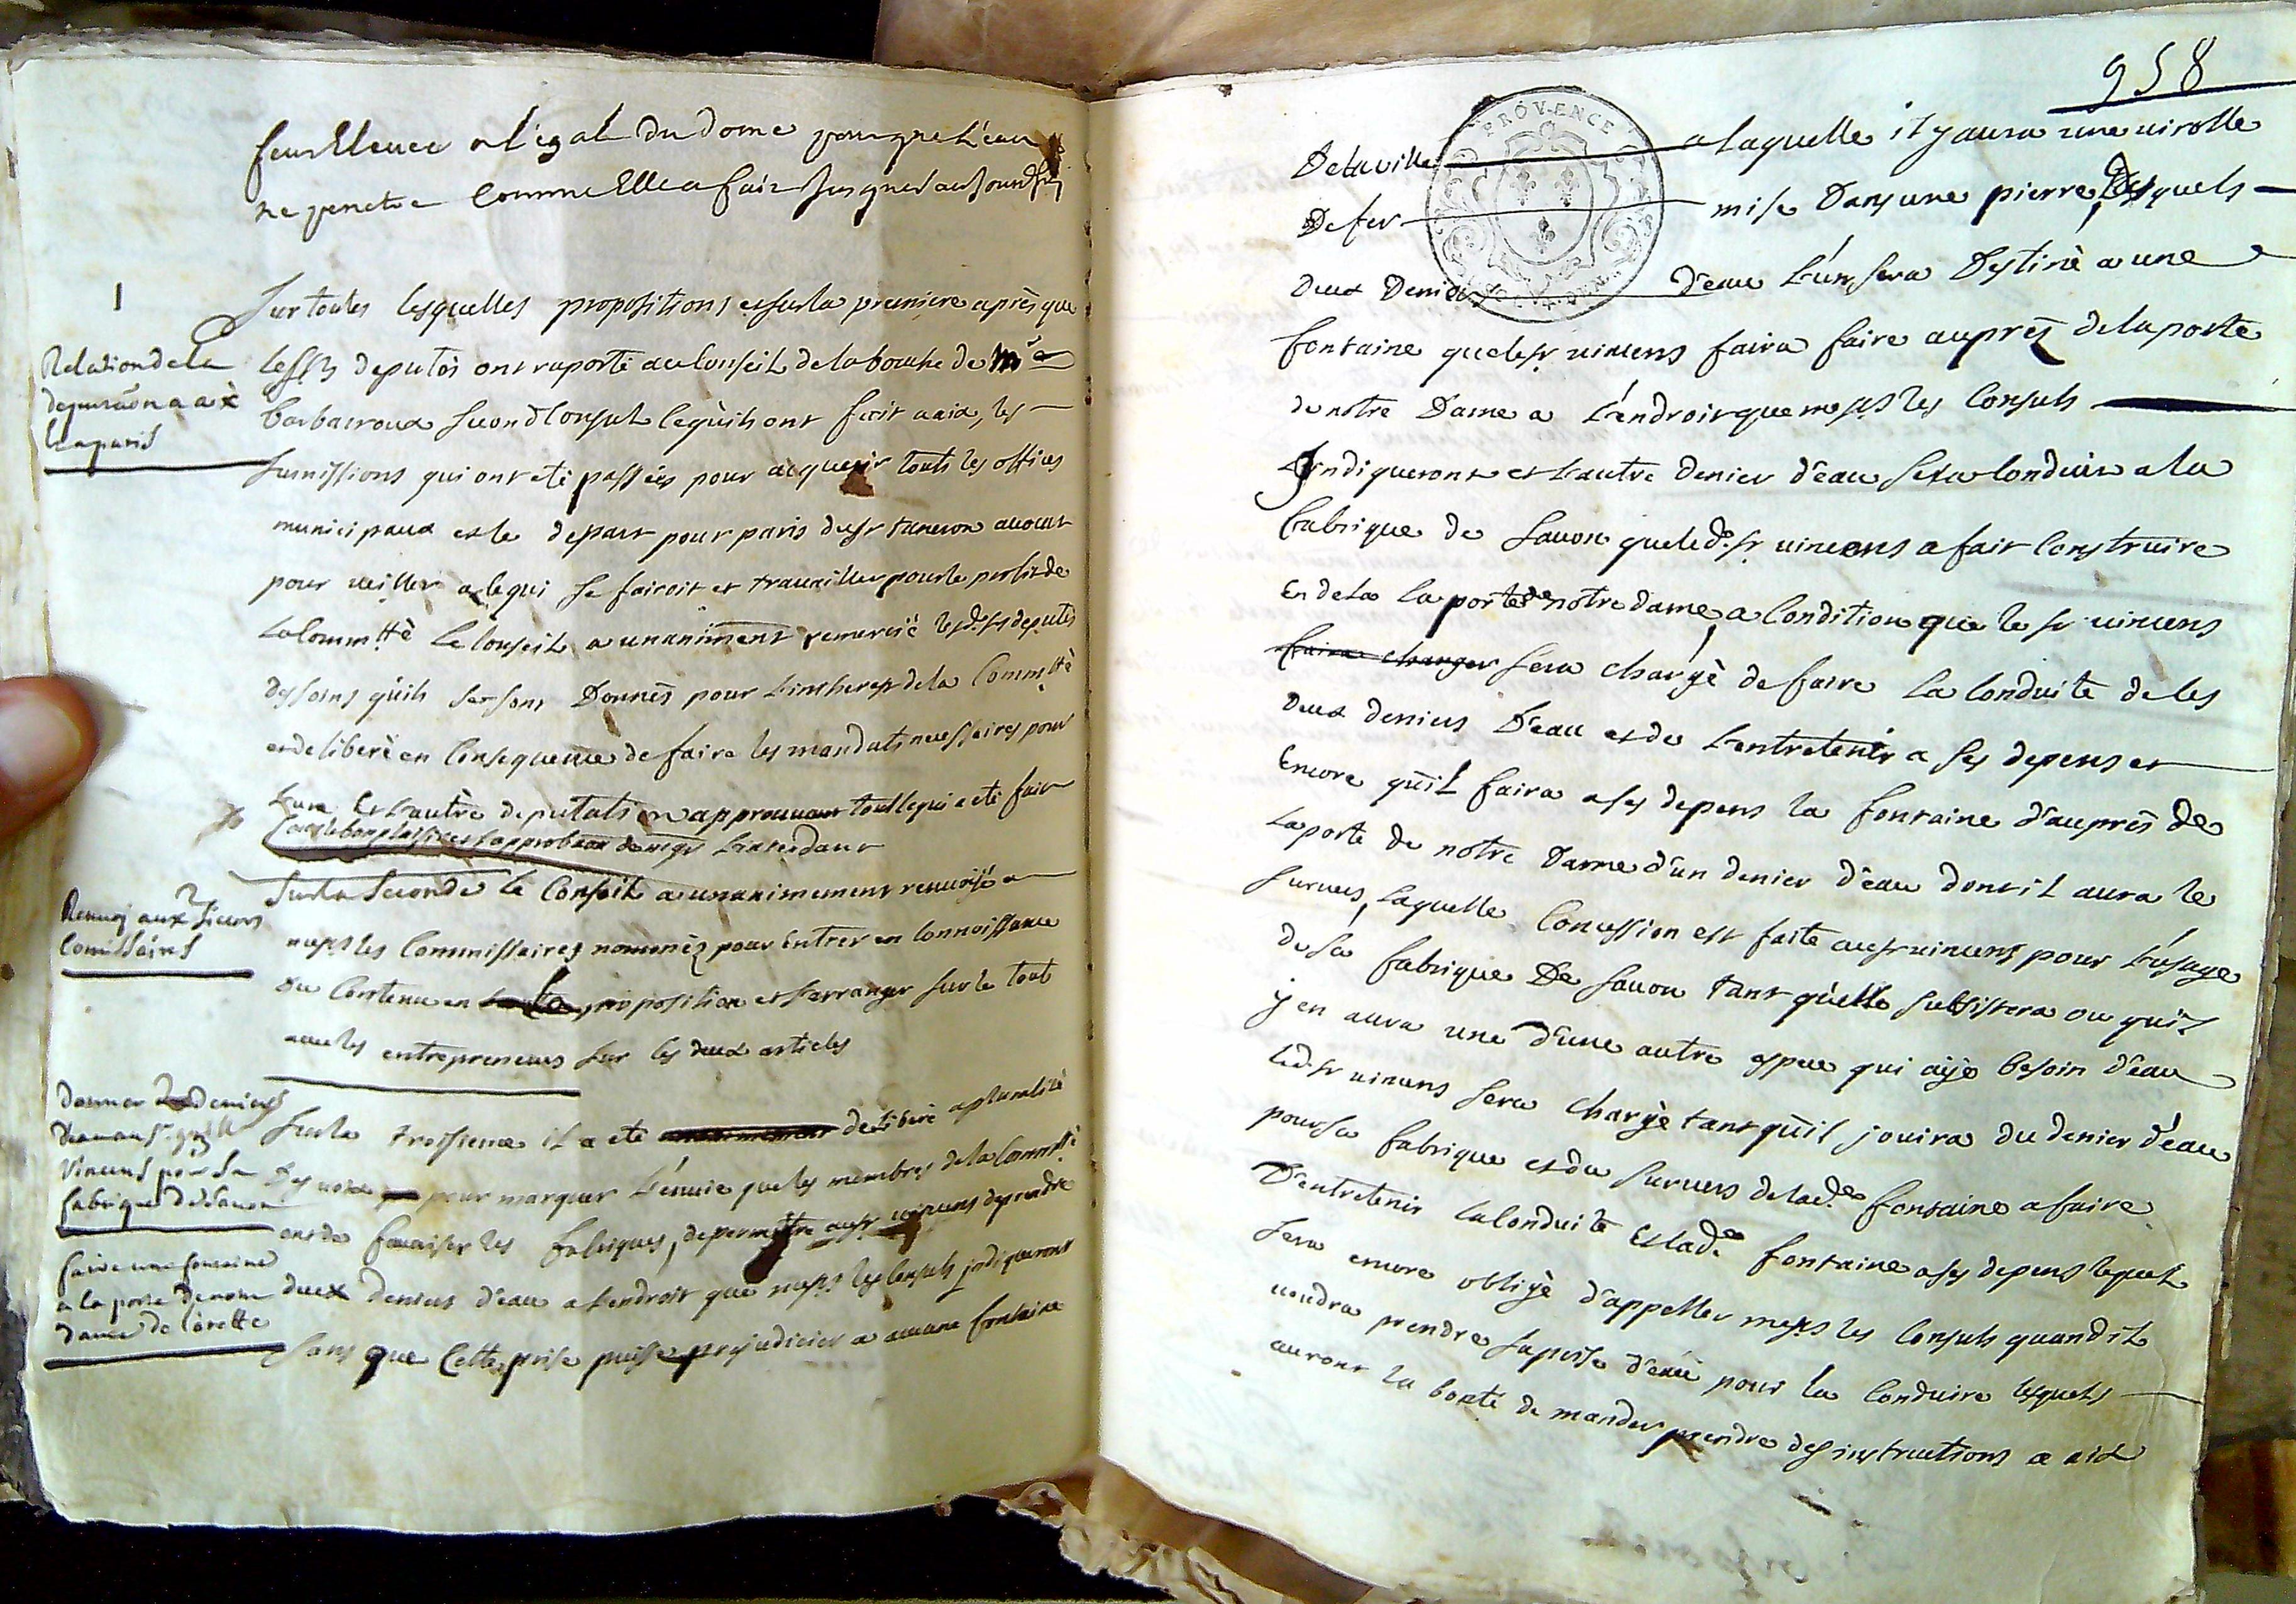 sera Elevee a l'egal du dome pour que L'eau
ne penetre Comme Elle a fait Jusques aujourdhuj
1
Sur toutes lesquelles propositions et sur la premiere après que
Relation de la
deputaôn a aix
et a paris
lessrs deputés ont raporté au Conseil de la bouche de mr
barbarroux second Consul ce qu'ils ont fait a aix, les
sumissions qui ont eté passées pour acquerir touts les offices
municipaux et le depart pour paris du sr taneron avocat
pour veiller a ce qui se fairoit et travailler pour le profit de
La Commtté Le Conseil a unaniment remercié lesd. srs deputés
des soins qu'ils se sont Donnés pour L'intherest de la Commtté
et deliberé en Consequence de faire les mandats necessaires pour
L'une Et L'autre deputation approuvant tout ce qui a eté fait
sous le bon plaisir et approbaôn de mgr L'intendant
2
Renvoj aux sieurs
Comissaires
Sur la Seconde Le Conseil a unanimement renvoÿé a
messrs les Commissaires nommés pour Entrer en Connoissance
du Contenu en la proposition et s'arranger sur le tout
avec les entrepreneurs sur les deux articles
donner 2 deniers
d'eau au sr
Vincens pour sa
fabrique de Savon
Sur la troisieme il a eté unanimement deliberé a pluralité
Des voix pour marquer L'envie que les membres de la Commtté
ont de favoriser les fabriques, de permettre au sr vincens de prendre
faire une fontaine
a la porte de notre
dame de Lorette
deux deniers d'eau a L'endroit que messrs les Consuls jndiqueront
sans que Cette prise puisse prejudicier a aucune fontaine
958
PROVENCE
De la ville a laquelle il y aura une virolle
De fer mise Dans une pierre, Desquels
Deux Deniers D'eau L'un sera Destiné a une
fontaine que le sr vincens faira faire auprés de la porte
de notre Dame a L'endroit que messrs les Consuls
Jndiqueront et L'autre denier d'eau sera Conduit a la
fabrique de Savon que led. sr vincens a fait Construire
En dela La porte de notre dame, a Condition que le sr vincens
faira changer sera chargé de faire La Conduite de Ces
Deux deniers D'eau et de L'entretenir a ses depens et
Encore qu'iL faira a ses depens la fontaine d'auprés de
La porte de notre Dame d'un denier d'eau dont iL aura le
survers, Laquelle Concession est faite au sr vincens pour L'usage
de sa fabrique De Savon tant qu'elle subsistera ou qu'iL
y en aura une d'une autre espece qui aÿe besoin d'eau
Led. sr vincens sera chargé tant qu'il jouira du denier d'eau
pour sa fabrique et du survers de lad.e fontaine a faire
D'entretenir La Conduite Et lad.e fontaine a ses depens lequel
sera encore obligé d'appeller messrs les Consuls quand iL
voudra prendre sa prise d'eau pour la Conduire lesquels
auront la bonté de mander prendre des instructions a aix